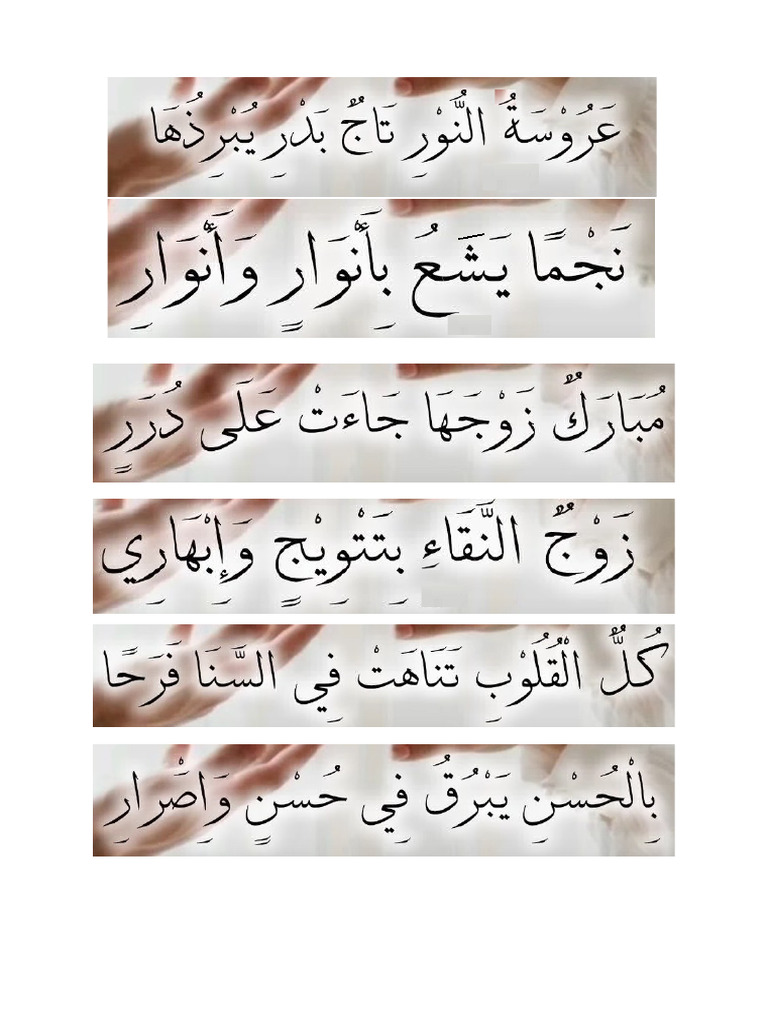 عَرُوْسَةُ النُّوْرِ تَاجٌ بَدْرِ يُبْرِذُهَا
نَجْمًا يَشَعُ بِأَنْوَارٍ وَأَنْوَارِ
مُبَارَكٌ زَوْجَهَا جَاءَتْ عَلَى دُرَرٍ
زَوْجٌ النَّقَاءِ بِتَتْوِيْجٍ وَإِبْهَارِي
كُلٌّ الْقُلُوْبِ تَنَاهَتْ فِي السَّنَا فَرَحًا
بِالْحُسْنِ يَبْرُقُ فِي حُسْنٍ وَاِصْرَارِ